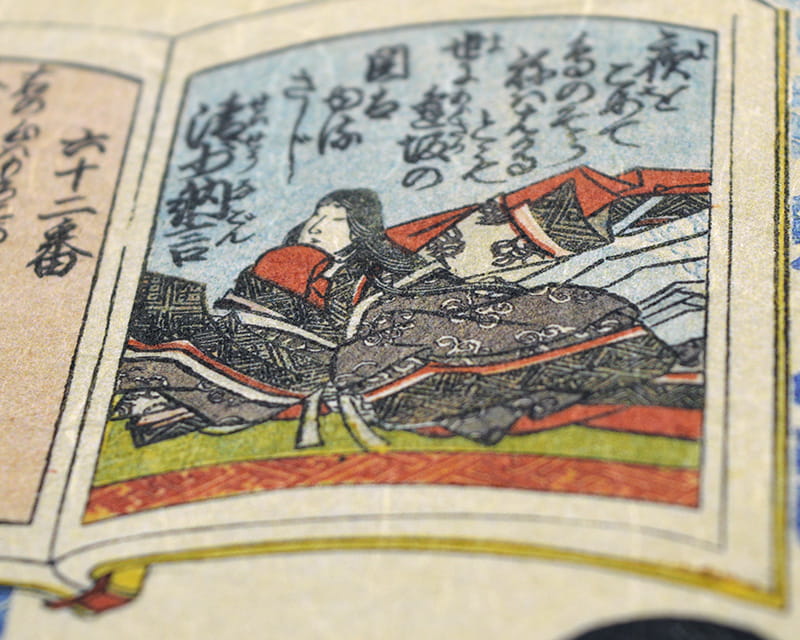 夜を
こめて
鳥のそら
祢ハはかる
とも
世に
逢坂の
関は
ゆる
さじ
清少納言
六十二番